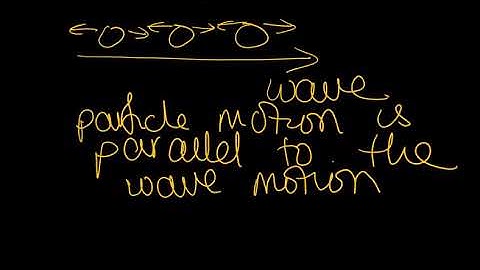 wave
particle motion is
parallel to the
wave motion